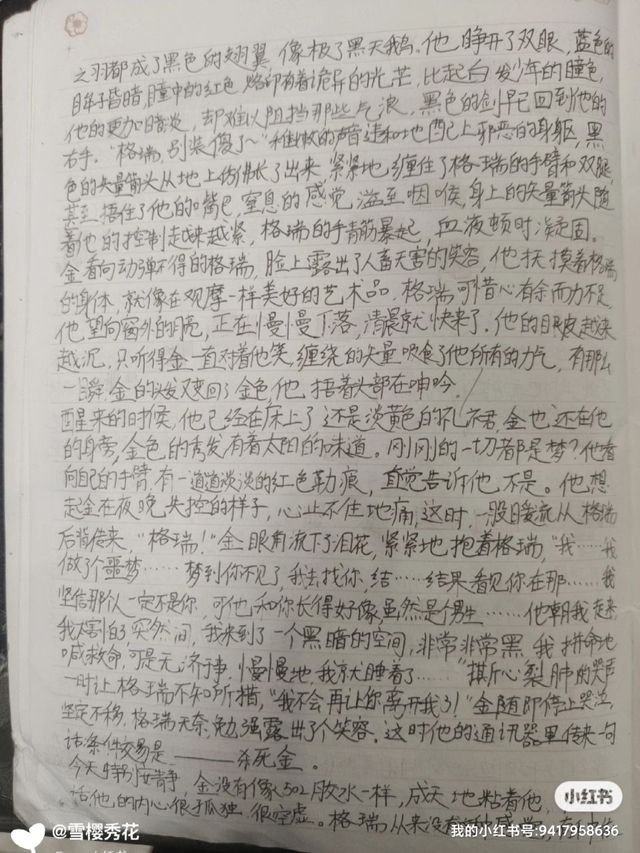 之羽都成了黑色的翅翼，像极了黑天鹅。他睁开了双眼，蓝色的
眸子昏暗，瞳中的红色烙印有着诡异的光芒，比起白发少年的瞳色，
他的更加暗淡，却难以阻挡那些气浪，黑色的剑早已回到他的
右手。"格瑞，别装傻了~"稚嫩的声音违和地配上邪恶的身躯，黑
色的矢量箭头从地上伸长了出来，紧紧地缠住了格瑞的手臂和双腿
甚至捂住了他的嘴巴，窒息的感觉，溢至咽喉，身上的矢量箭头随
着他的控制越来越紧，格瑞的手青筋暴起，血液顿时凝固。
金看向动弹不得的格瑞，脸上露出了人畜无害的笑容，他抚摸着格瑞
的身体，就像在观摩一样美好的艺术品，格瑞可惜心有余而力不足，
他望向窗外的月亮，正在慢慢下落，清晨就快来了。他的眼皮越来
越沉，只听得金一直对着他笑，缠绕的矢量吸食了他所有的力气，有那么
一瞬，金的头发又变回了金色，他捂着头部在呻吟。
醒来的时候，他已经在床上了，还是淡黄色的，金也还在他
的身旁，金色的秀发有着太阳的味道。刚刚的一切都是梦？他看
向自己的手臂，有一道道淡淡的红色勒痕，直觉告诉他，不是。他想
起金在夜晚失控的样子，心止不住地痛，这时，一股暖流从格瑞
后背传来，"格瑞！"金眼角流下了泪花，紧紧地抱着格瑞，"我……我
做了个噩梦……梦到你不见了，我去找你，结……结果看见你在那……我
坚信那个人一定不是你，可他和你长得好像，虽然是男生……他朝我走来
我太害怕了突然间，我来到了一个黑暗的空间，非常非常黑，我拼命地
喊救命，可是无济于事，慢慢地，我就睡着了……"撕心裂肺的哭声
一时让格瑞不知所措，"我不会再让你离开我了！"金随即停止哭泣，
坚定不移，格瑞无奈，勉强露出了个笑容。这时他的通讯器里传来一句
话条件交易是——杀死金。
今天特别安静，金没有像502胶水一样，成天地粘着他，
话他，的内心很孤独，很空虚。格瑞从来没有
小红书
@雪樱秀花
我的小红书号:9417958636